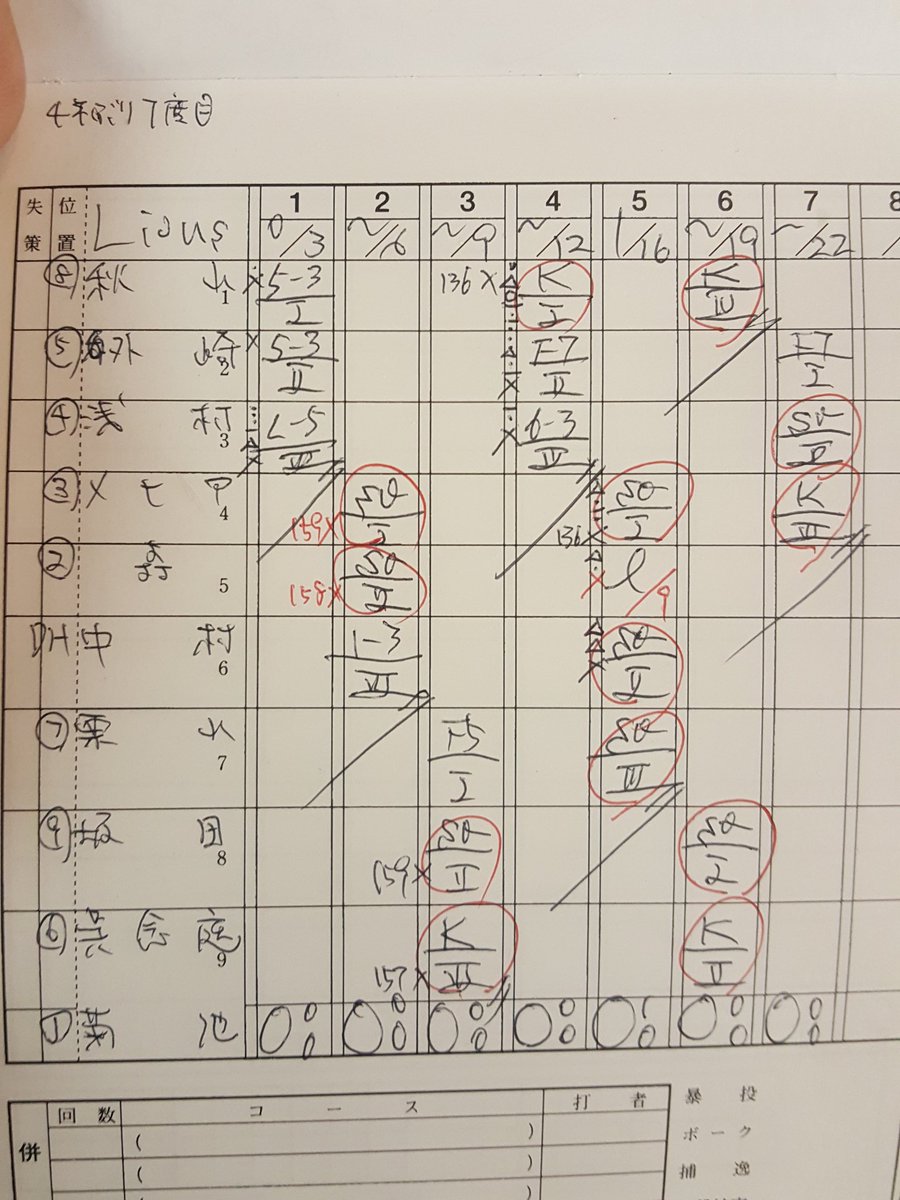 4年ぶり7度目
失策 位置 Lions 1 2 3 4 5 6 7 8
0/3 ~/6 ~/9 ~/12 1/16 ~/19 ~/22
⑧ 秋 山 1 5-3 I 136 K I K III
⑤ 外 崎 2 5-3 II F7 II F7 I
④ 浅 村 3 L-5 III 6-3 III SO II
③ メ ヒ ア 4 159 SO I 136 SO I K III
② 森 5 158 SO II l/9
DH 中 村 6 F-3 III SO II
⑦ 栗 山 7 F5 I SO III
⑨ 坂 田 8 159 SO II SO I
⑥ 呉 念 庭 9 157 K III K II
① 菊 池
併 回数 コース 打者
( )
( )
暴投
ボーク
捕逸